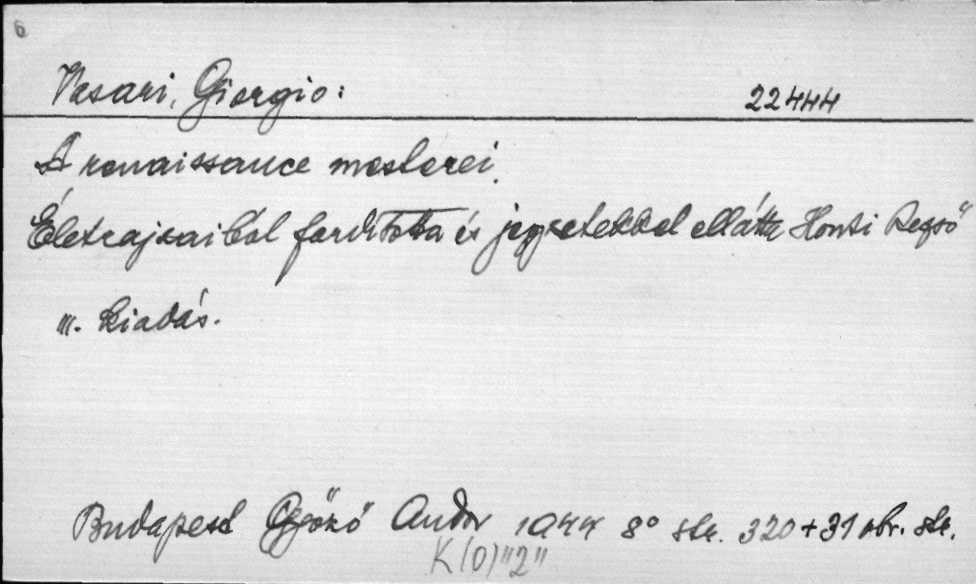 6
Vasari, Giorgio: 22444
A renaissance mesterei.
Életrajzaiból fordította és jegyzetekkel ellátta Honti Rezső
III. kiadás.
Budapest Győző Andor 1944 8° str. 320+31 abr. str.
K(0)"2"